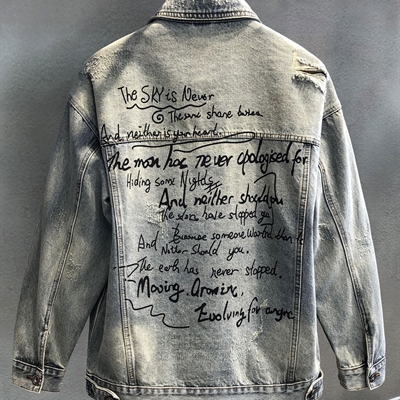 The SKY is Never
The same shape twice
And neither is your heart.
The moon has never apologised for
Hiding some Nights
And neither should you
The stars have stopped
Because someone Wanted them to
And
Neither Should you.
The earth has never stopped.
Moving, Growing,
Evolving for anyone